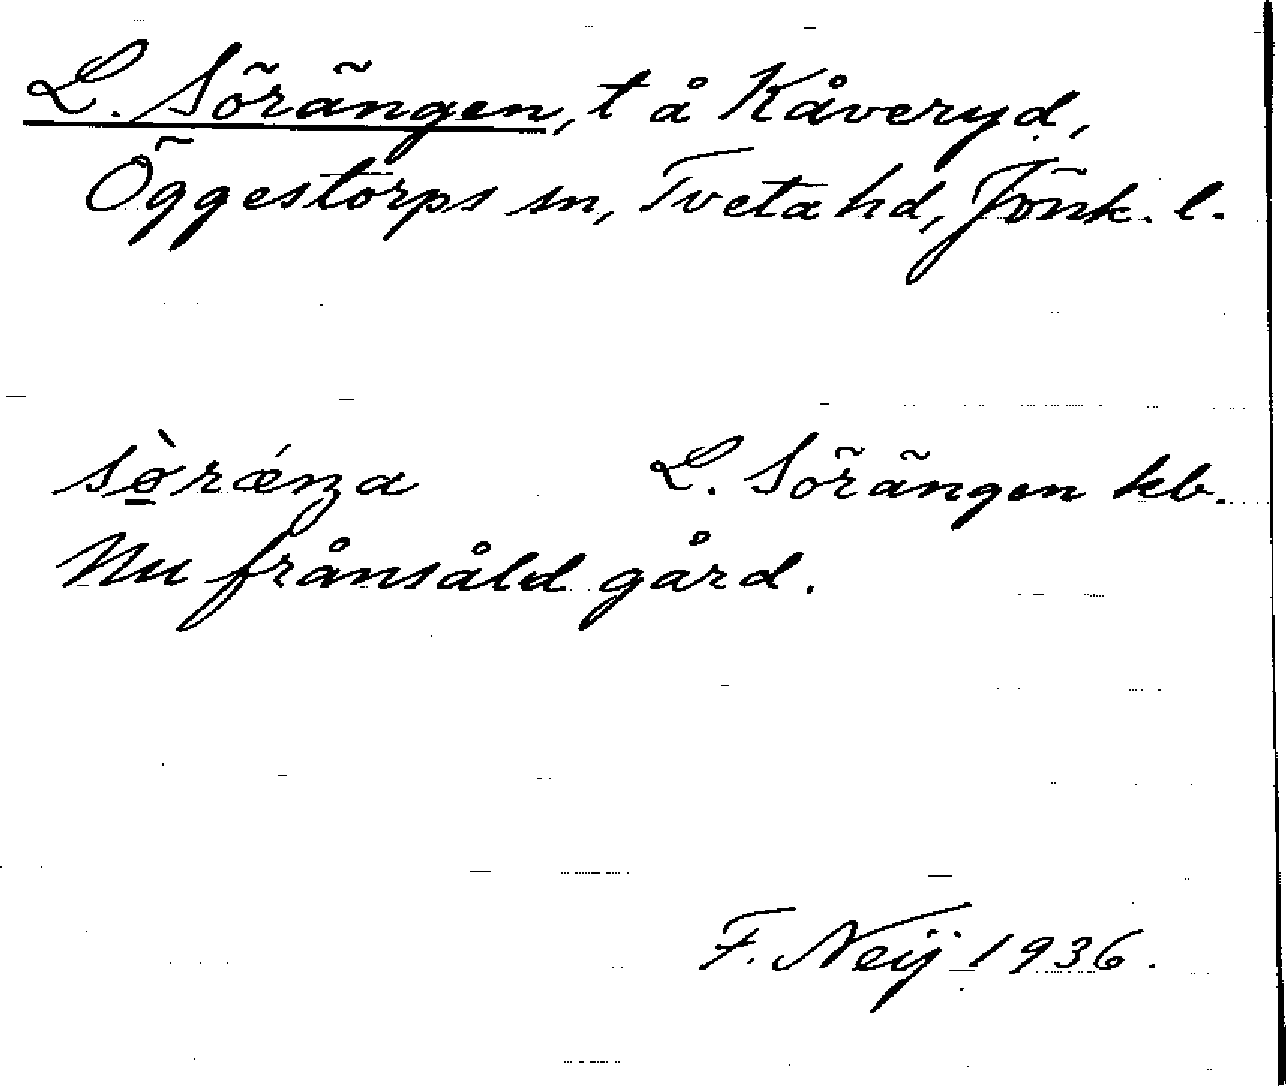 L. Sörängen, t å Kåveryd,
Öggestorps sn, Tveta hd, Jönk. l.
sö̀rǽŋa L. Sörängen kb.
Nu frånsåld gård.
F. Neij 1936.